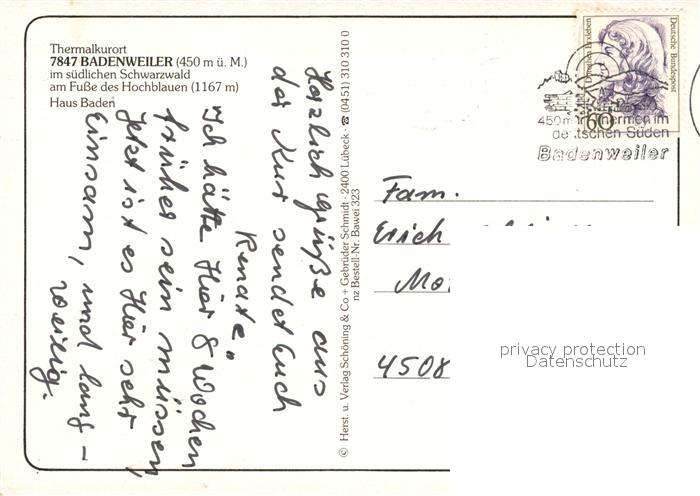 Thermalkurort
7847 BADENWEILER (450 m ü. M.)
im südlichen Schwarzwald
am Fuße des Hochblauen (1167 m)
Haus Baden
Herzlich grüße aus
der Kur sendet Euch
Renate"
Ich hätte Hier 8 Wochen
früher sein müssen,
Jetzt ist es Hier sehr
Einsam, und lang-
weilig.
© Herst. u. Verlag Schöning & Co + Gebrüder Schmidt · 2400 Lübeck · ☎ (0451) 310 310 0
nz Bestell-Nr. Bawei 323
Dorothea Erxleben
Deutsche Bundespost
60
450 m Thermen im
deutschen Süden
Badenweiler
Fam.
Erich
4508
privacy protection
Datenschutz